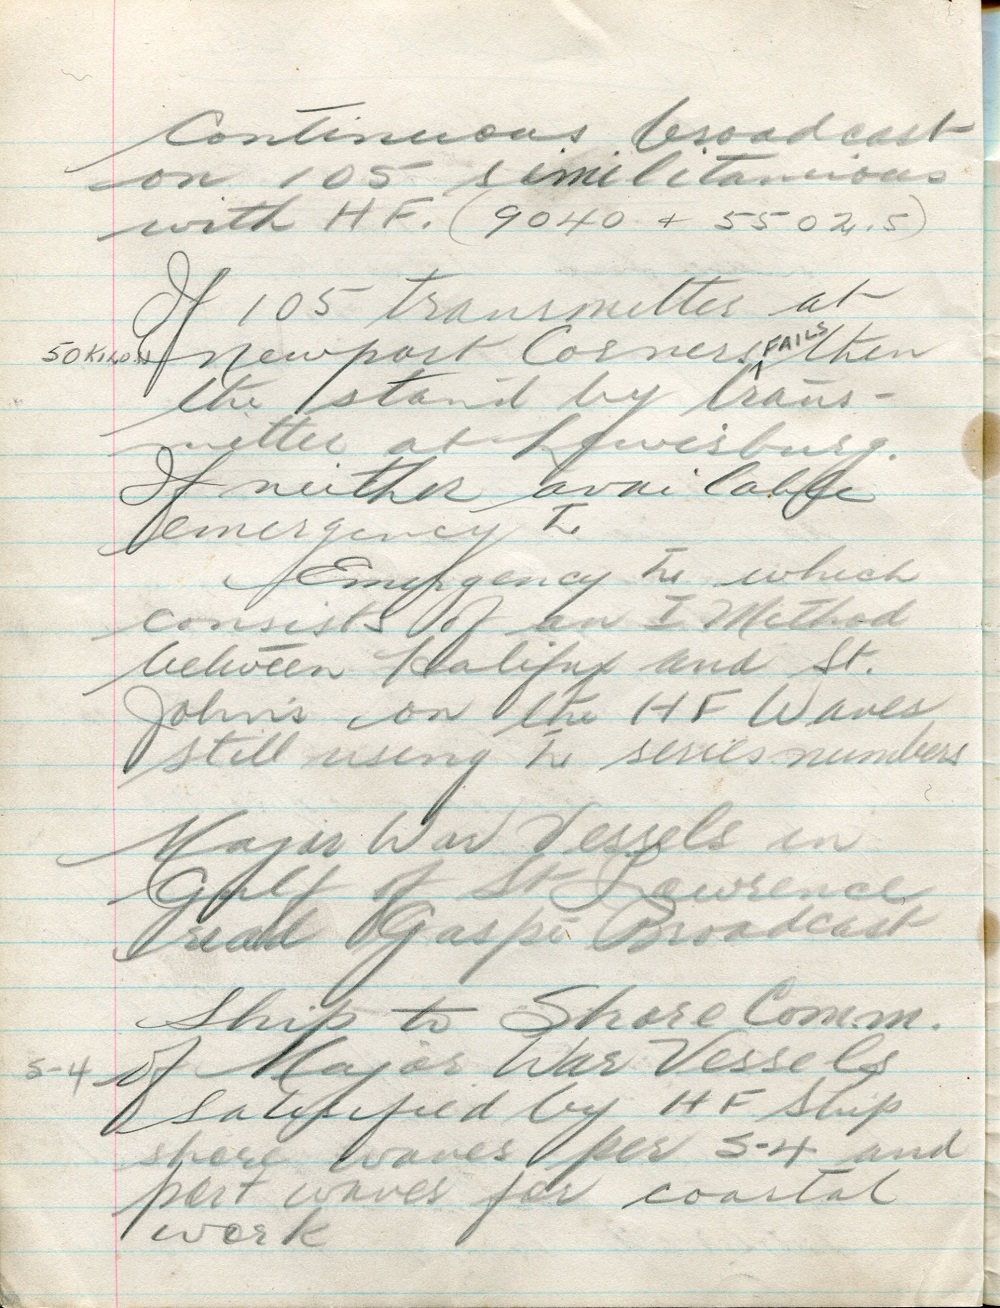 Continuous broadcast
on 105 similitanious
with HF. (9040 + 5502.5)
If 105 transmitter at
50 KILOS Newport Corner, FAILS then
the stand by trans-
mitter at Lewisburg.
If neither available
emergency
Emergency which
consists of an I Method
between Halifax and St.
John's on the HF Waves
still using series numbers
Major War Vessels in
Gulf of St Lawrence
read Gaspé Broadcast
Ship to Shore Comm.
S-4 of Major War Vessels
satisfied by HF Ship
shore waves per S-4 and
port waves for coastal
work